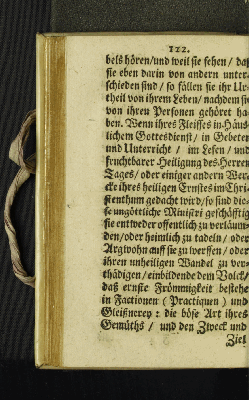 122.
bels hören/und weil sie sehen / daß
sie eben darin von andern unter-
schieden sind / so fällen sie ihr Ur-
theil von ihrem Leben/ nachdem sie
von ihren Persohen gehöret ha-
ben. Wenn ihres Fleisses in Häus-
lichem Gottesdienst/ in Gebeten
und Unterricht / im Lesen / und
fruchtbarer Heiligung des Herren
Tages/ oder einiger andern Wer-
cke ihres heiligen Ernstes im Chri-
stenthum gedacht wird/so sind die-
se ungöttliche Ministri geschäfftig
sie entweder offentlich zu verläum-
den/oder heimlich zu tadeln / oder
Argwohn auff sie zu werffen / oder
ihren unheiligen Wandel zu ver-
thädigen/einbildende dem Volck/
daß ernste Frömmigkeit bestehe
in Factionen ( Practiquen ) und
Gleisnerey : die böse Art ihres
Gemüths / und den Zweck und
Ziel